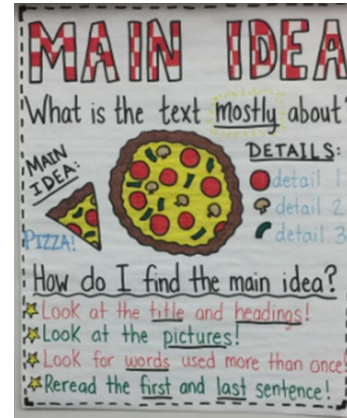 MAIN IDEA
What is the text mostly about?
MAIN
IDEA:
PIZZA!
DETAILS:
detail 1
detail 2
detail 3
How do I find the main idea?
Look at the title and headings!
Look at the pictures!
Look for words used more than once!
Reread the first and last sentence!